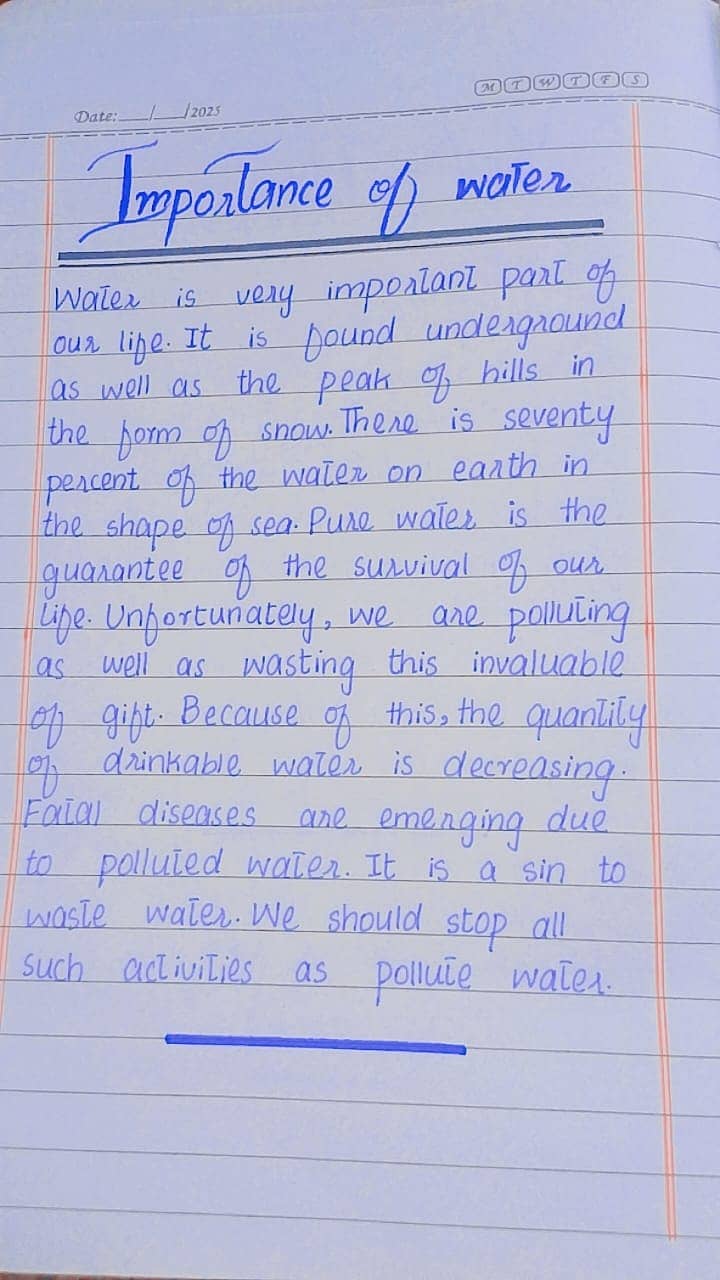 M T W T F S
Date:___/___/2025
Importance of water
Water is very important part of
our life. It is found underground
as well as the peak of hills in
the form of snow. There is seventy
percent of the water on earth in
the shape of sea. Pure water is the
guarantee of the survival of our
life. Unfortunately, we are polluting
as well as wasting this invaluable
of gift. Because of this, the quantity
of drinkable water is decreasing.
Fatal diseases are emerging due
to polluted water. It is a sin to
waste water. We should stop all
such activities as pollute water.